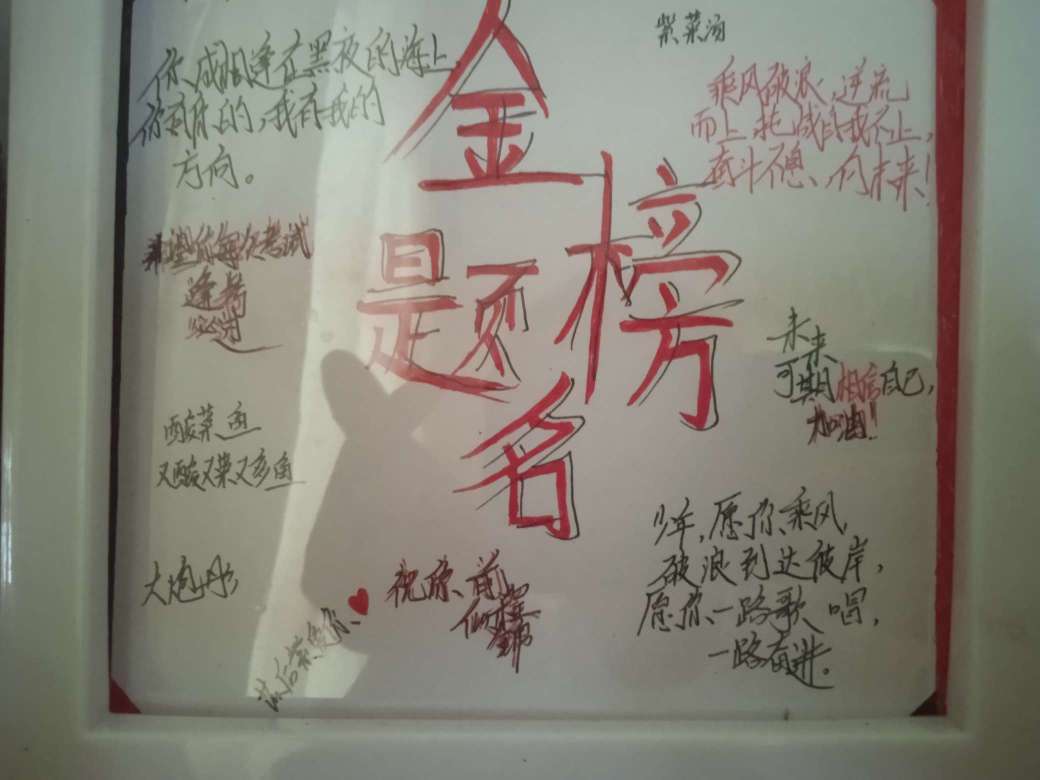 紫菜汤
你我相逢在黑夜的海上,
你有你的,我有我的
方向。
金
榜
题
名
乘风破浪,逆流
而上,挑战自我不止,
奋斗不息,向未来!
希望你每次考试
逢考
必过
未来
可期相信自己,
加油!
酸菜鱼
又酸又菜又多鱼
少年,愿你乘风
破浪到达彼岸,
愿你一路歌唱,
一路奋进。
大炮
祝你前
似锦